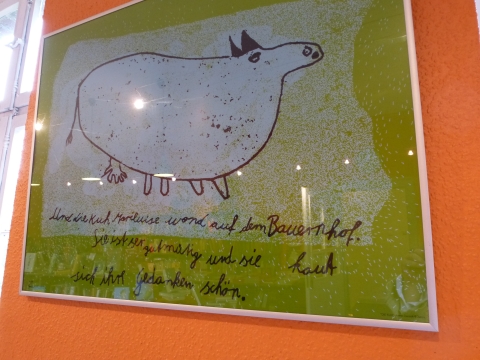 Und die Kuh Mariluise wond auf dem Bauernhof.
Sie ist ser gutmütig und sie kaut
sich ihr gedanken schön.